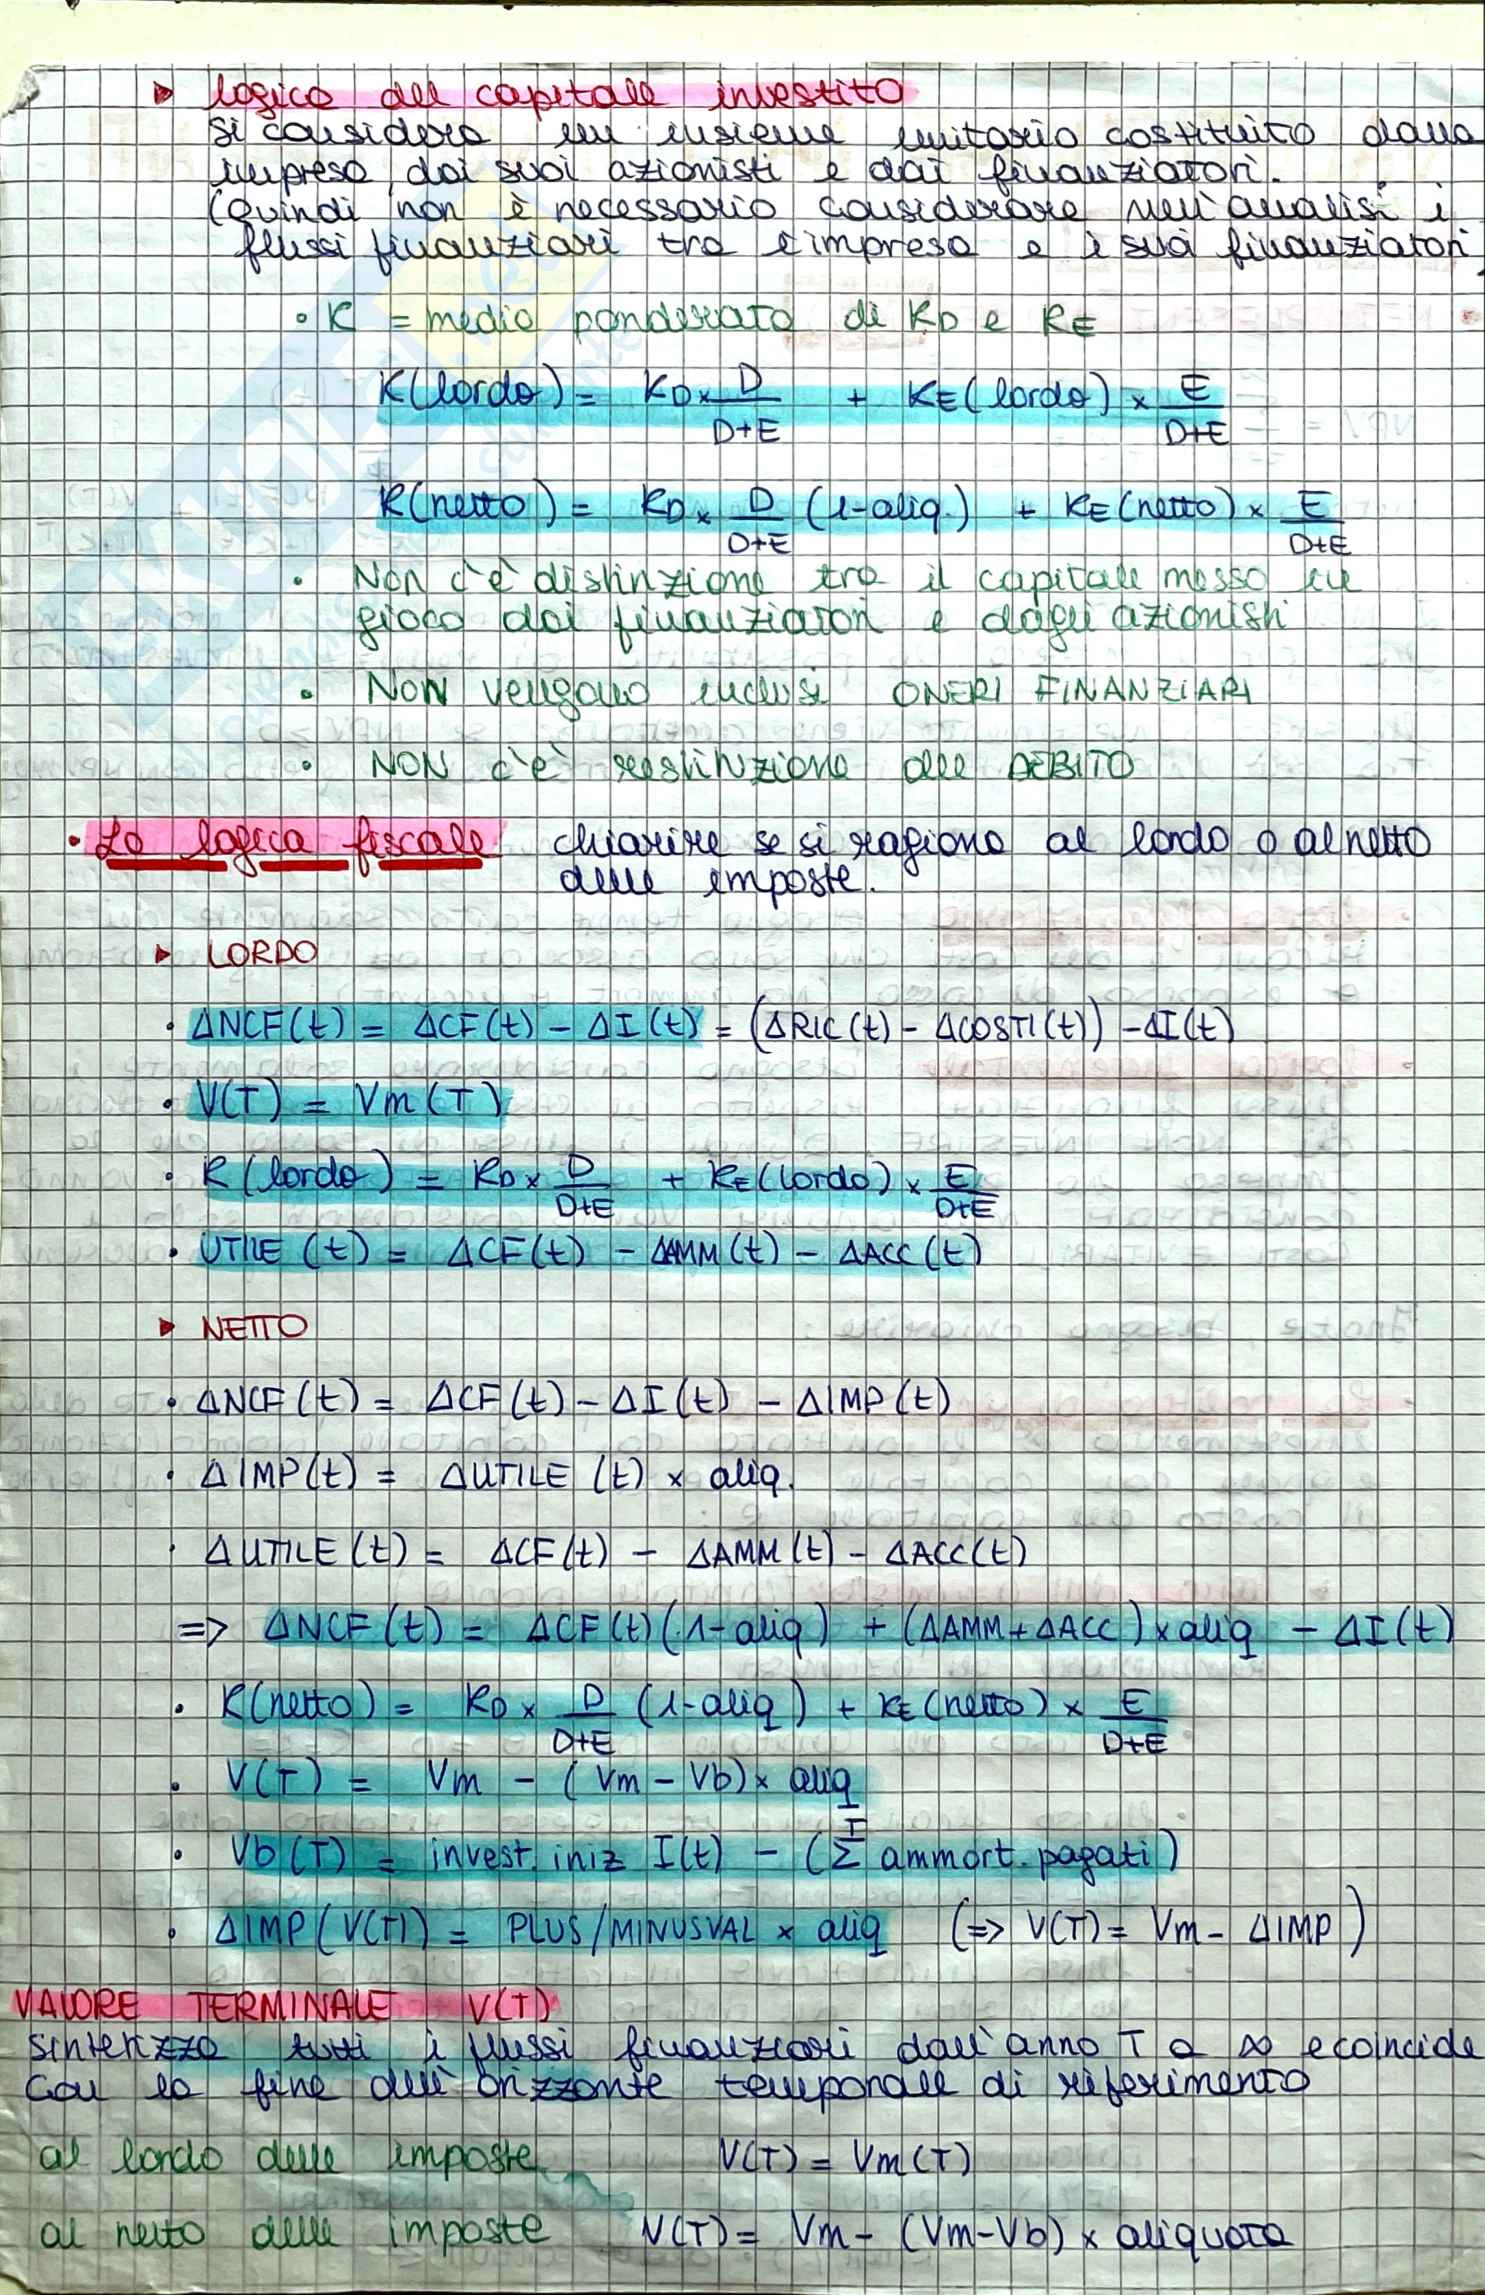 ▸ logica del capitale investito
si considera un insieme unitario costituito dalla
impresa, dai suoi azionisti e dai finanziatori.
(Quindi non è necessario considerare nell'analisi i
flussi finanziari tra l'impresa e i suoi finanziatori
• K = media ponderata di KD e KE
K(lordo) = KD × D/(D+E) + KE(lordo) × E/(D+E)
K(netto) = KD × D/(D+E) (1-aliq.) + KE(netto) × E/(D+E)
• Non c'è distinzione tra il capitale messo in
gioco dai finanziatori e dagli azionisti
• NON vengono inclusi ONERI FINANZIARI
• NON c'è restituzione del DEBITO
• La logica fiscale chiarire se si ragiona al lordo o al netto
delle imposte.
▸ LORDO
• ΔNCF(t) = ΔCF(t) - ΔI(t) = (ΔRIC(t) - ΔCOSTI(t)) - ΔI(t)
• V(T) = Vm(T)
• K(lordo) = KD × D/(D+E) + KE(lordo) × E/(D+E)
• UTILE (t) = ΔCF(t) - ΔAMM(t) - ΔACC(t)
▸ NETTO
• ΔNCF(t) = ΔCF(t) - ΔI(t) - ΔIMP(t)
• ΔIMP(t) = ΔUTILE (t) × aliq.
• ΔUTILE(t) = ΔCF(t) - ΔAMM(t) - ΔACC(t)
=> ΔNCF(t) = ΔCF(t)(1-aliq) + (ΔAMM+ΔACC)×aliq - ΔI(t)
• K(netto) = KD × D/(D+E) (1-aliq) + KE(netto) × E/(D+E)
• V(T) = Vm - (Vm - Vb) × aliq
• Vb(T) = invest. iniz I(t) - (Σ^T ammort. pagati)
• ΔIMP(V(T)) = PLUS/MINUSVAL × aliq (=> V(T) = Vm - ΔIMP)
VALORE TERMINALE V(T)
sintetizza tutti i flussi finanziari dall'anno T a ∞ e coincide
con la fine dell'orizzonte temporale di riferimento
al lordo delle imposte V(T) = Vm(T)
al netto delle imposte V(T) = Vm - (Vm-Vb) × aliquota